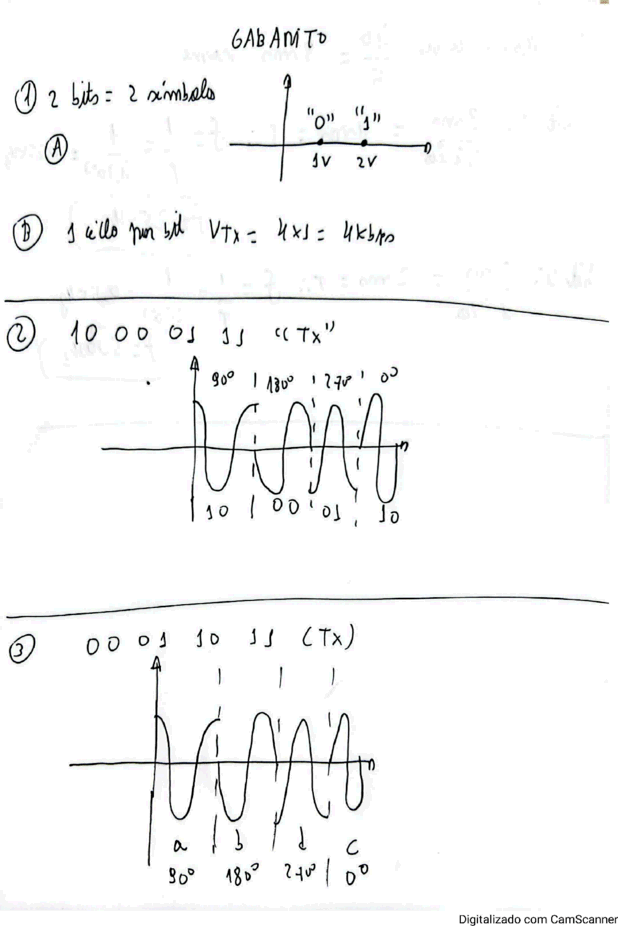 GABARITO
① 2 bits = 2 símbolo
Ⓐ "0" "1"
1V 2V
Ⓑ 1 ciclo por bit VTx = 4x1 = 4kbps
② 10 00 01 11 "Tx"
90° 180° 270° 0°
10 00 01 10
③ 00 01 10 11 (Tx)
a b d c
90° 180° 270° 0°
Digitalizado com CamScanner